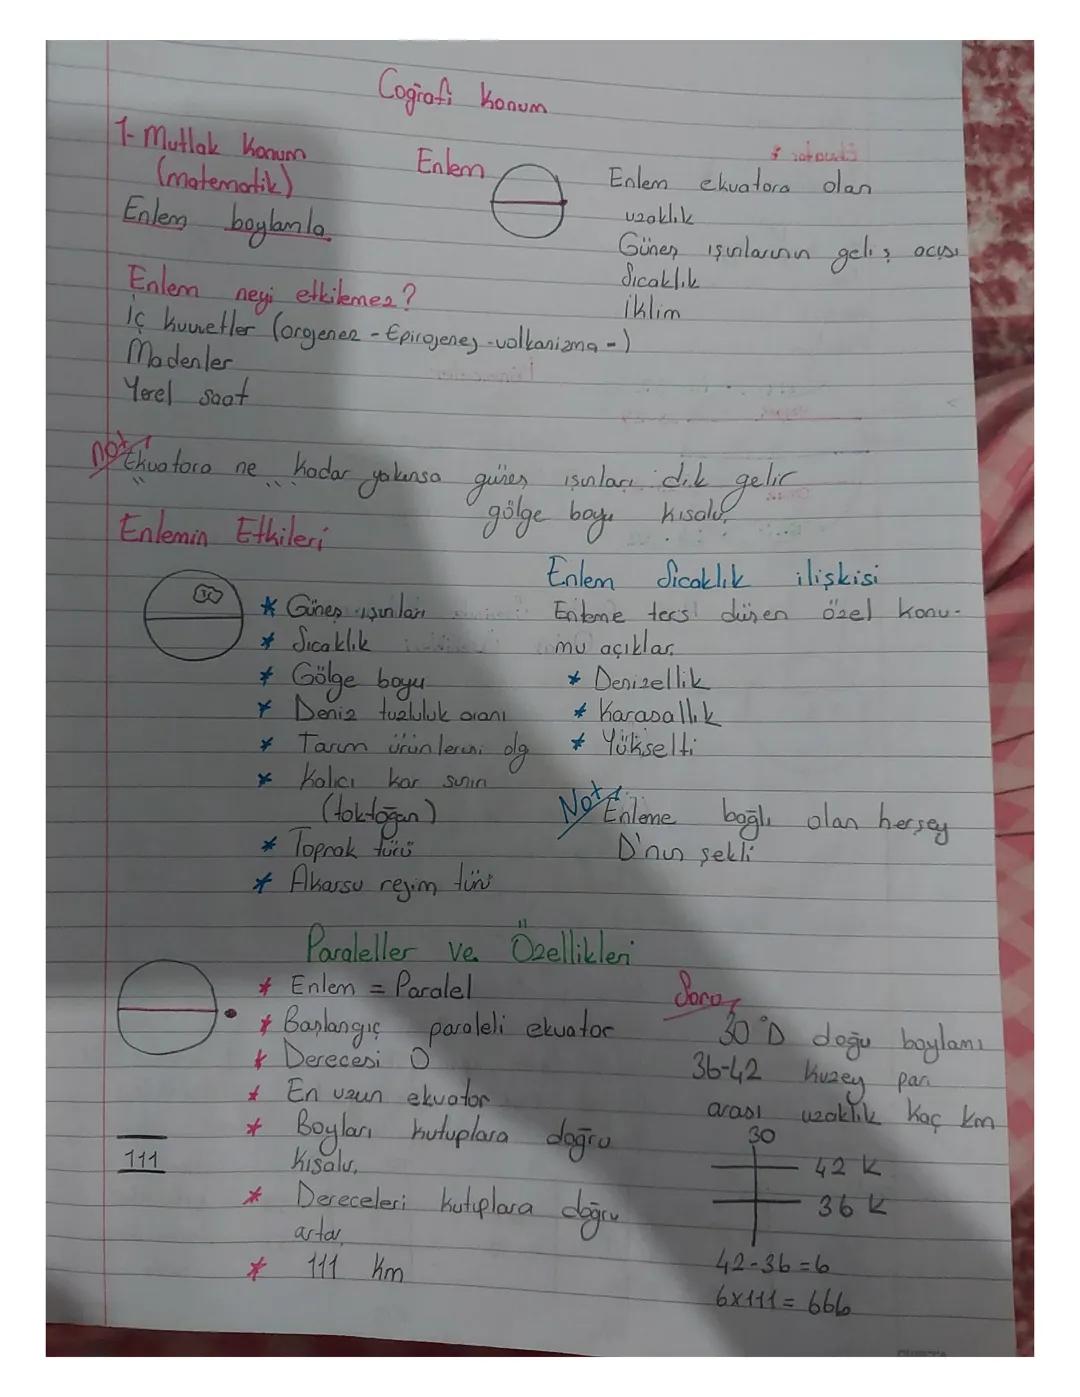 Coğrafi Konum
1- Mutlak Konum
(matematik)
Enlem boylamla
Enlem
Enlem ekvatora olan
uzaklık
Güneş ışınlarının geliş açısı
Sıcaklık
İklim
Enlem neyi etkilemez?
İç kuvvetler (orojenez - Epirojenez - volkanizma - )
Madenler
Yerel saat
not
Ekvatora ne kadar yakınsa güneş ışınları dik gelir
gölge boyu kısalır.
Enlemin Etkileri
* Güneş ışınları
* Sıcaklık
* Gölge boyu
* Deniz tuzluluk oranı
* Tarım ürünlerini olg
* Kalıcı kar sınırı
(toktoğan)
* Toprak türü
* Akarsu rejim türü
Enlem Sıcaklık ilişkisi
Enleme ters düşen özel konu-
mu açıklar.
* Denizellik
* Karasallık
* Yükselti
Not
Enleme bağlı olan herşey
D'nın şekli
Paraleller ve Özellikleri
* Enlem = Paralel
* Başlangıç paraleli ekvator
* Derecesi 0
* En uzun ekvator
* Boyları kutuplara doğru
kısalır.
* Dereceleri kutuplara doğru
artar.
* 111 km
111
Soru
30°D doğu boylamı
36-42 kuzey par.
arası uzaklık kaç km
30
42 K
36 K
42-36=6
6x111= 666